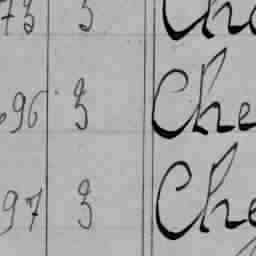 73 3 Che
696 3 Che
97 3 Che